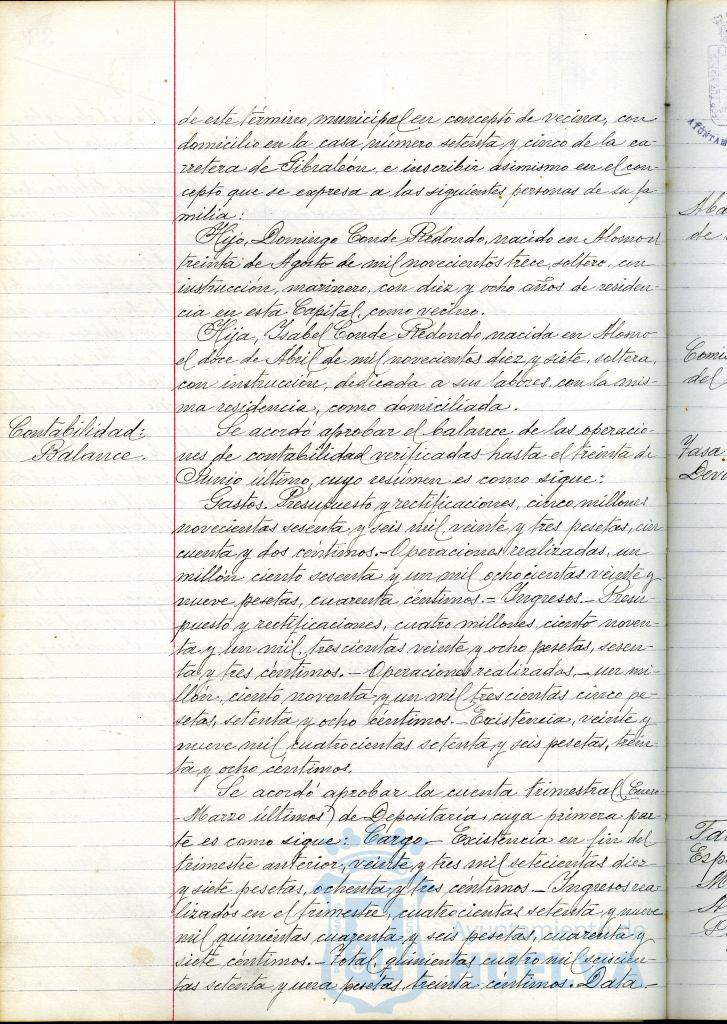 de este término municipal en concepto de vecina, con
domicilio en la casa número setenta y cinco de la ca-
rretera de Gibraleón, e inscribir asimismo en el con-
cepto que se expresa a las siguientes personas de su fa-
milia:
Hijo, Domingo Conde Redondo, nacido en Alosno el
treinta de Agosto de mil novecientos trece, soltero, con
instrucción, marinero, con diez y ocho años de residen-
cia en esta Capital, como vecino.
Hija, Isabel Conde Redondo, nacida en Alosno
el doce de Abril de mil novecientos diez y siete, soltera,
con instrucción, dedicada a sus labores, con la mis-
ma residencia, como domiciliada.
Contabilidad:
Balance.
Se acordó aprobar el balance de las operacio-
nes de contabilidad verificadas hasta el treinta de
Junio último, cuyo resúmen es como sigue:
Gastos. Presupuesto y rectificaciones, cinco millones
novecientas sesenta y seis mil, veinte y tres pesetas, cin
cuenta y dos céntimos.- Operaciones realizadas, un
millón ciento sesenta y un mil ochocientas veinte y
nueve pesetas, cuarenta céntimos.= Ingresos.- Presu-
puesto y rectificaciones, cuatro millones, ciento noven-
ta y un mil, trescientas veinte y ocho pesetas, sesen-
ta y tres céntimos.- Operaciones realizadas,- un mi-
llón, ciento noventa y un mil, trescientas cinco pe-
setas, setenta y ocho céntimos.- Existencia, veinte y
nueve mil cuatrocientas setenta y seis pesetas, trein-
ta y ocho céntimos.
Se acordó aprobar la cuenta trimestral (Enero-
-Marzo últimos) de Depositaría, cuya primera par
te es como sigue: Cargo.- Existencia en fin del
trimestre anterior, veinte y tres mil setecientas diez
y siete pesetas, ochenta y tres céntimos.- Ingresos rea-
lizados en el trimestre, cuatrocientas setenta y nueve
mil quinientas cuarenta y seis pesetas, cuarenta y
siete céntimos.- Total, quinientas cuatro mil seiscien-
tas setenta y una pesetas treinta céntimos. Data.-
Ayuntamiento de
HUELVA
de
del
Tasa